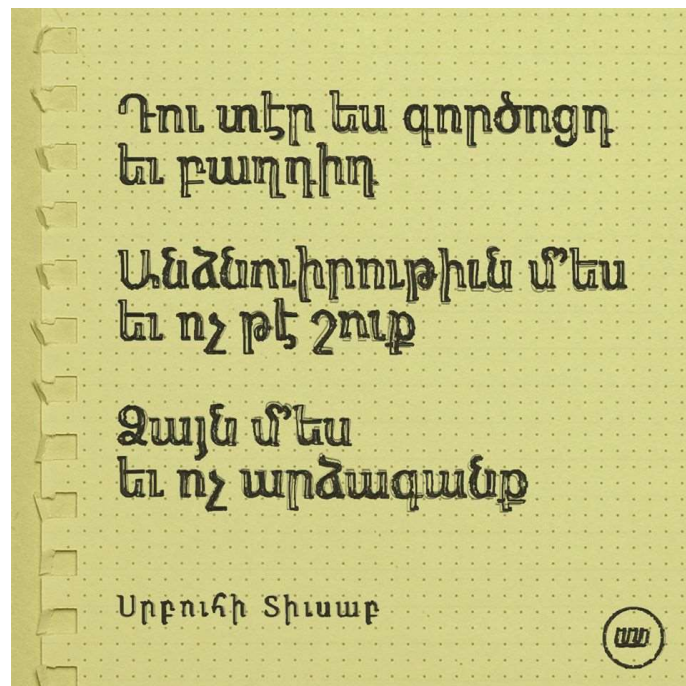 Դու տէր ես գործոցդ
եւ բաղդիդ
Անձնուիրութիւն մ՚ես
եւ ոչ թէ շուք
Ձայն մ՚ես
եւ ոչ արձագանք
Սրբուհի Տիւսաբ